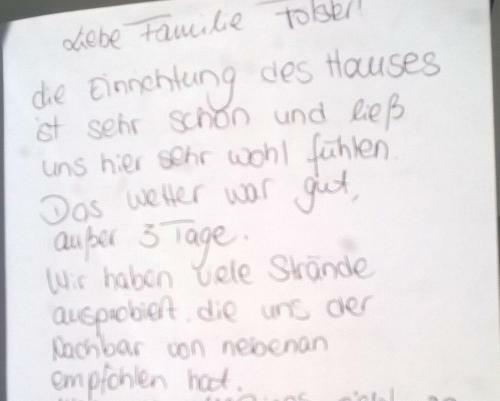 Liebe Familie
die Einrichtung des Hauses
ist sehr schön und ließ
uns hier sehr wohl fühlen.
Das Wetter war gut,
außer 3 Tage.
Wir haben viele Strände
ausprobiert, die uns der
Nachbar von nebenan
empfohlen hat.